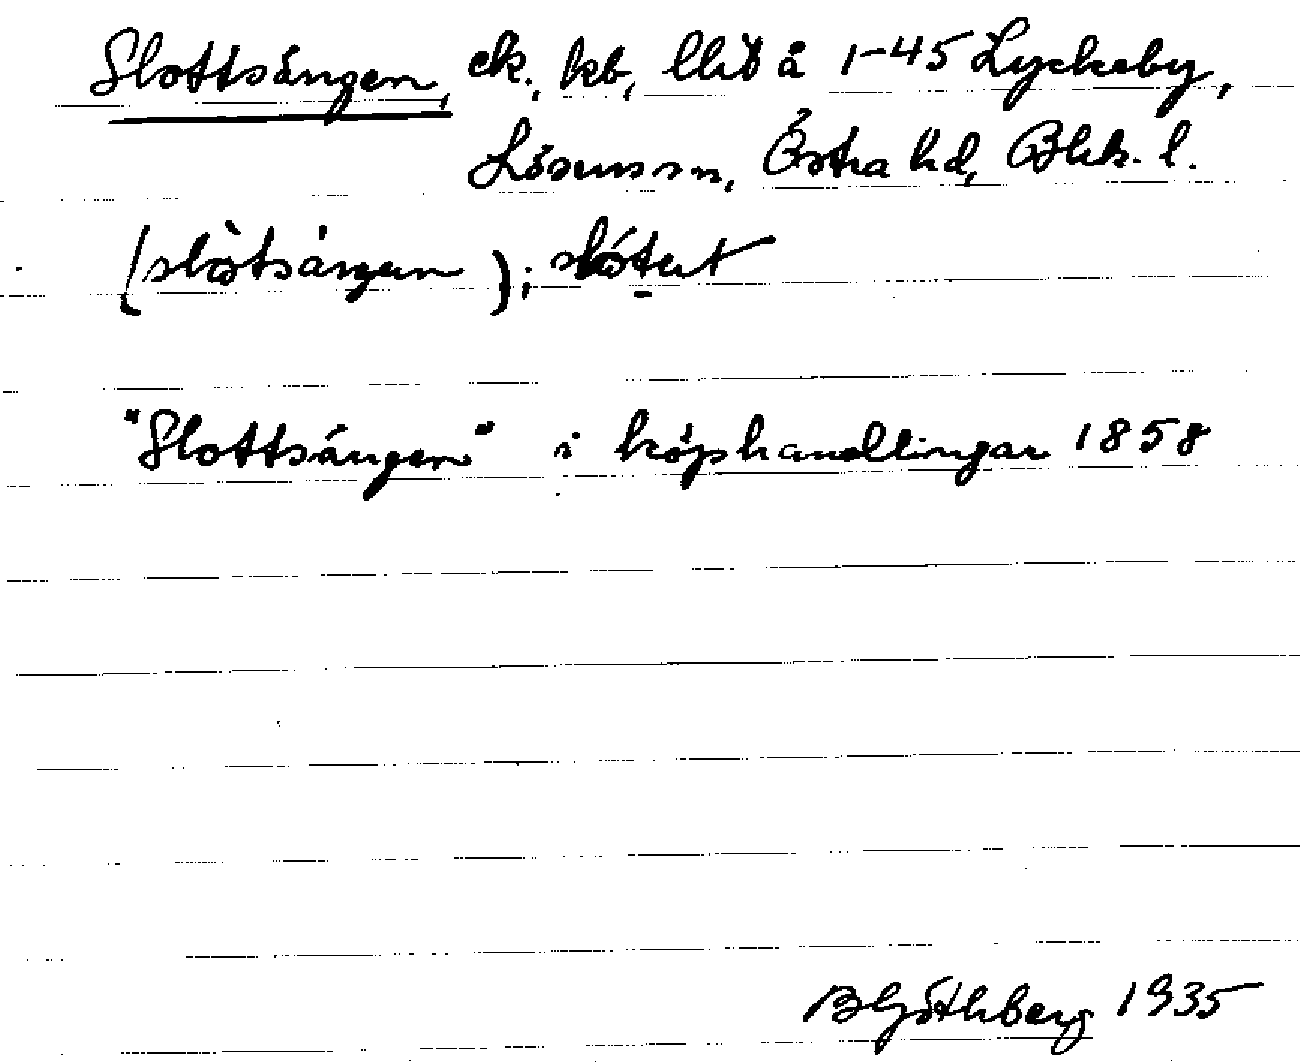 Slottsängen, ck., kb, lhb å 1-45 Lyckeby,
Lösens sn, Östra hd, Blek. l.
(slòtsáṇgen); slótet
"Slottsängen" i köphandlingar 1858
B Göthberg 1935